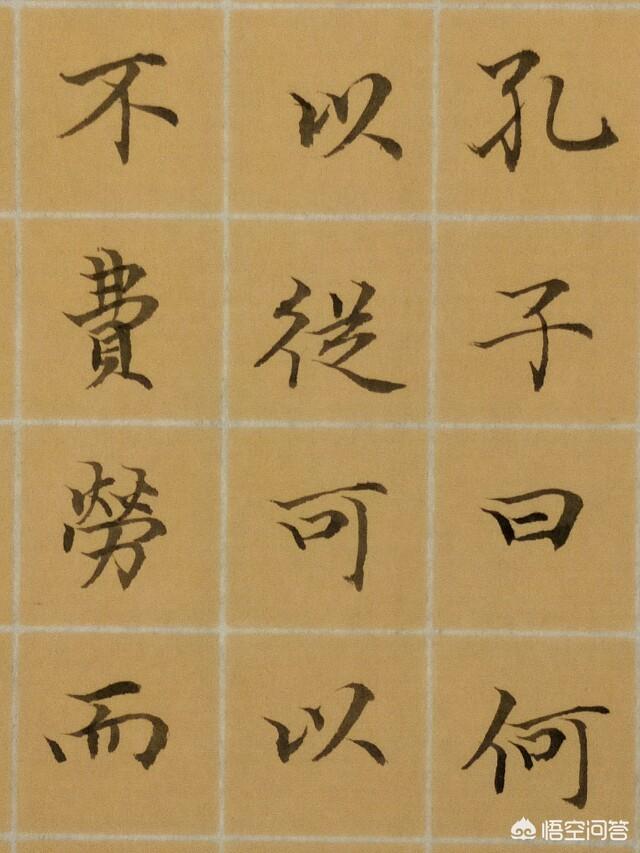 孔子曰何
以從可以
不費勞而
悟空问答